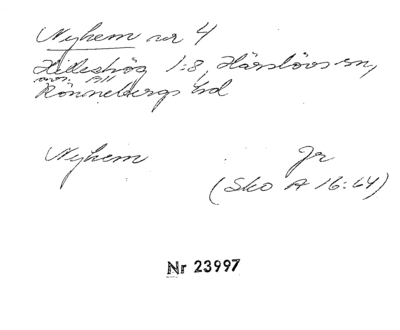 Nyhem nr 4
Hilleshög 1:8, Härslövs sn,
Rönnebergs hd
Nyhem Jr
(Sko A 16:64)
Nr 23997